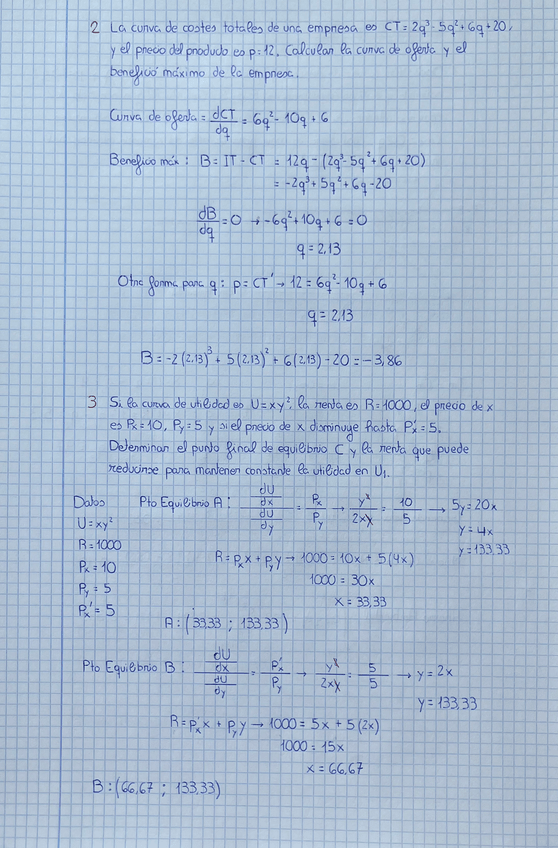 2 La curva de costes totales de una empresa es CT = 2q³ - 5q² + 6q + 20,
y el precio del producto es p = 12. Calcular la curva de oferta y el
beneficio máximo de la empresa.
Curva de oferta = dCT/dq = 6q² - 10q + 6
Beneficio máx: B = IT - CT = 12q - (2q³ - 5q² + 6q + 20)
= -2q³ + 5q² + 6q - 20
dB/dq = 0 → -6q² + 10q + 6 = 0
q = 2,13
Otra forma para q: p = CT' → 12 = 6q² - 10q + 6
q = 2,13
B = -2(2,13)³ + 5(2,13)² + 6(2,13) - 20 = -3,86
3 Si la curva de utilidad es U = xy², la renta es R = 1000, el precio de x
es Px = 10, Py = 5 y si el precio de x disminuye hasta P'x = 5.
Determinar el punto final de equilibrio C y la renta que puede
reducirse para mantener constante la utilidad en U₁.
Datos
U = xy²
R = 1000
Px = 10
Py = 5
Px' = 5
Pto Equilibrio A: (dU/dx)/(dU/dy) = Px/Py → y²/2xy = 10/5 → 5y = 20x
y = 4x
y = 133,33
R = Px x + Py y → 1000 = 10x + 5(4x)
1000 = 30x
x = 33,33
A: (33,33 ; 133,33)
Pto Equilibrio B: (dU/dx)/(dU/dy) = Px'/Py → y²/2xy = 5/5 → y = 2x
y = 133,33
R = Px' x + Py y → 1000 = 5x + 5(2x)
1000 = 15x
x = 66,67
B: (66,67 ; 133,33)